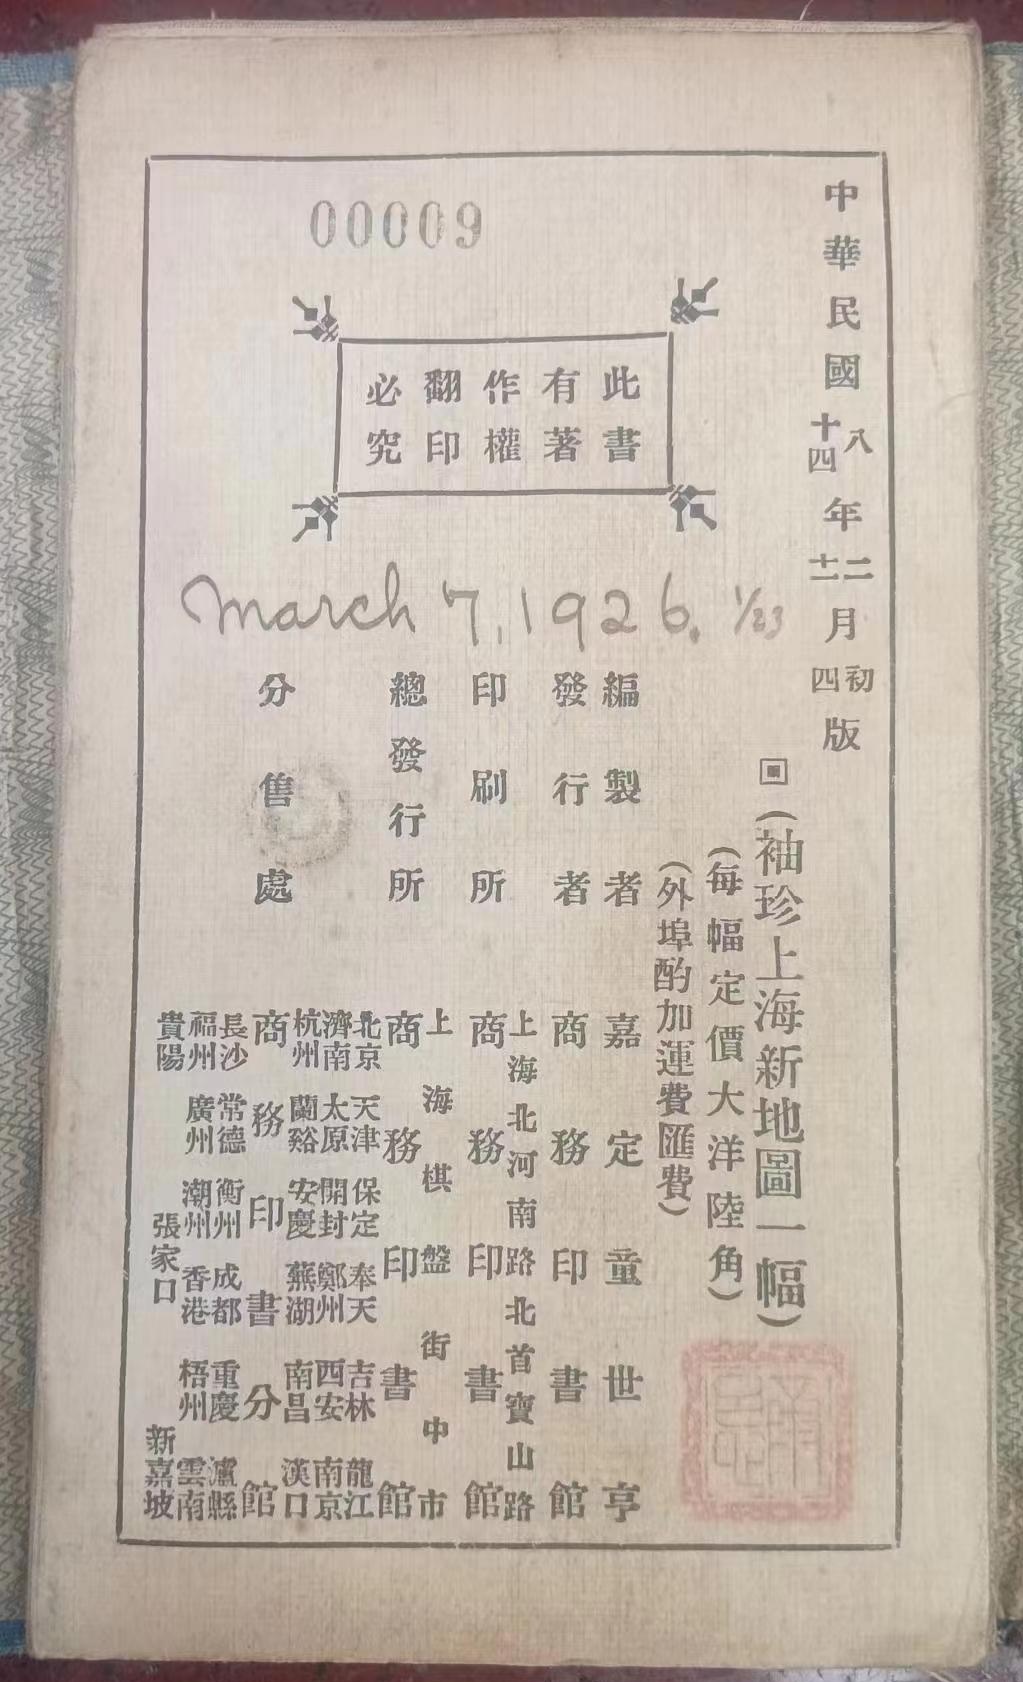 中華民國八年二月初版
十四 十二 四
(袖珍上海新地圖一幅)
(每幅定價大洋陸角)
(外埠酌加運費匯費)
00009
此書
有著
作權
翻印
必究
March 7, 1926. 1/23
編製者 嘉定童世亨
發行者 商務印書館
上海北河南路北首寶山路
印刷所 商務印書館
上海棋盤街中市
總發行所 商務印書館
北京 天津 保定 奉天 吉林 龍江
濟南 太原 開封 鄭州 西安 南京
杭州 蘭谿 安慶 蕪湖 南昌 漢口
分售處 商務印書分館
長沙 常德 衡州 成都 重慶 瀘縣
福州 廣州 潮州 香港 梧州 雲南
貴陽 張家口 新嘉坡